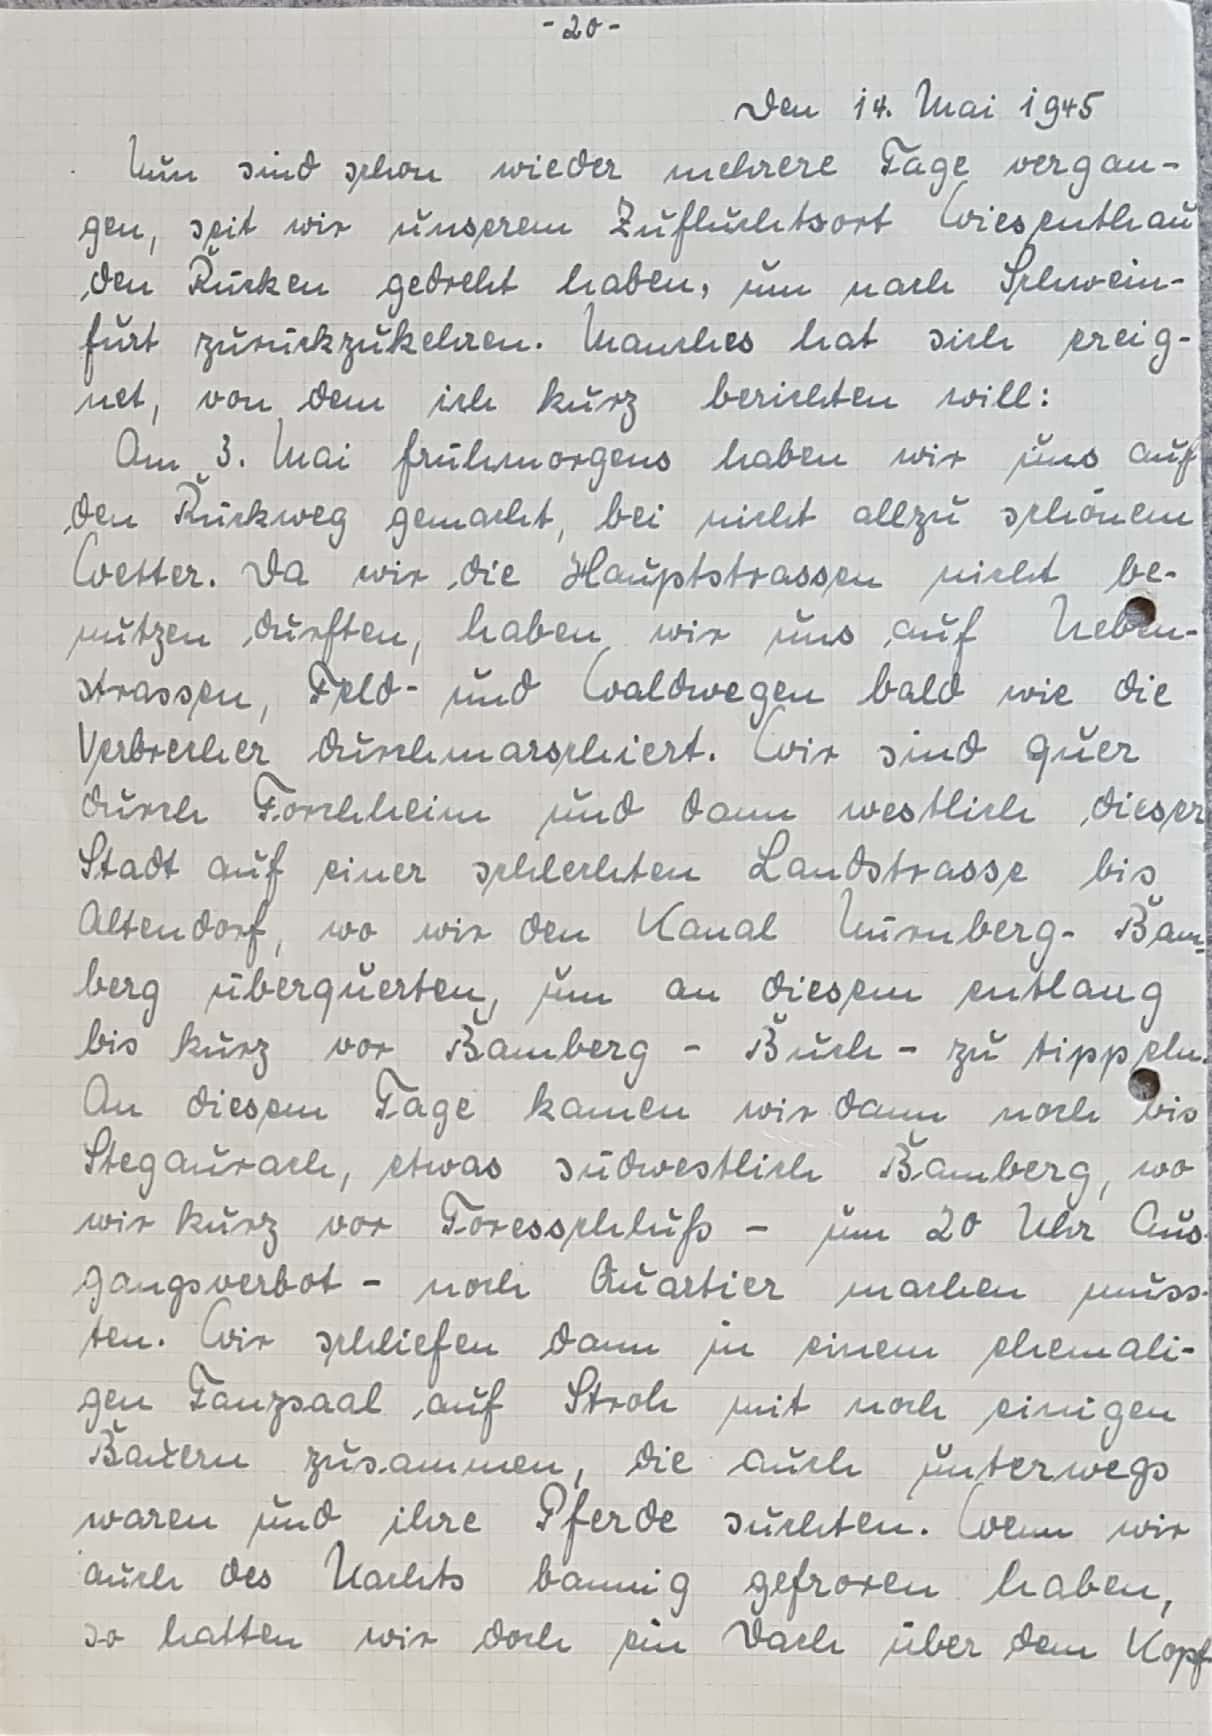 - 20 -
Den 14. Mai 1945
Nun sind schon wieder mehrere Tage vergan-
gen, seit wir unserem Zufluchtsort Wiesenthau
den Rücken gedreht haben, um nach Schwein-
furt zurückzukehren. Manches hat sich ereig-
net, von dem ich kurz berichten will:
Am 3. Mai frühmorgens haben wir uns auf
den Rückweg gemacht, bei nicht allzu schönem
Wetter. Da wir die Hauptstrassen nicht be-
nutzen durften, haben wir uns auf Neben-
strassen, Feld- und Waldwegen bald wie die
Verbrecher durchmarschiert. Wir sind quer
durch Forchheim und dann westlich dieser
Stadt auf einer schlechten Landstrasse bis
Altendorf, wo wir den Kanal Nürnberg- Bam-
berg überquerten, um an diesem entlang
bis kurz vor Bamberg - Buch - zu tippeln.
An diesem Tage kamen wir dann noch bis
Stegaurach, etwas südwestlich Bamberg, wo
wir kurz vor Toresschluß - um 20 Uhr Aus-
gangsverbot - noch Quartier machen muss-
ten. Wir schliefen dann in einem ehemali-
gen Tanzsaal auf Stroh mit noch einigen
Bauern zusammen, die auch unterwegs
waren und ihre Pferde suchten. Wenn wir
auch des Nachts bannig gefroren haben,
so hatten wir doch ein Dach über dem Kopf